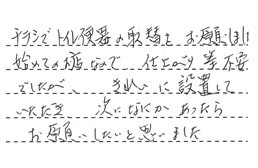 チラシでトイレ便器の取替えお願いしました
始めての極なので 仕上がり等不安
でしたが、 きれいに設置して
いただき 次になにかあったら
お願いしたいと思いました